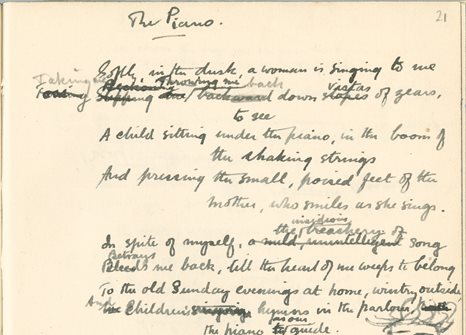 The Piano.
21
Softly, in the dusk, a woman is singing to me
Taking me back down vistas of years,
to see
A child sitting under the piano, in the boom of
the shaking strings
And pressing the small, poised feet of the
mother, who smiles as she sings.
insidious
the treachery of
In spite of myself, a mild, unintelligent song
Betrays
me back, till the heart of me weeps to belong
To the old Sunday evenings at home, wintry outside
And Children's hymns in the parlour,
the piano guide.